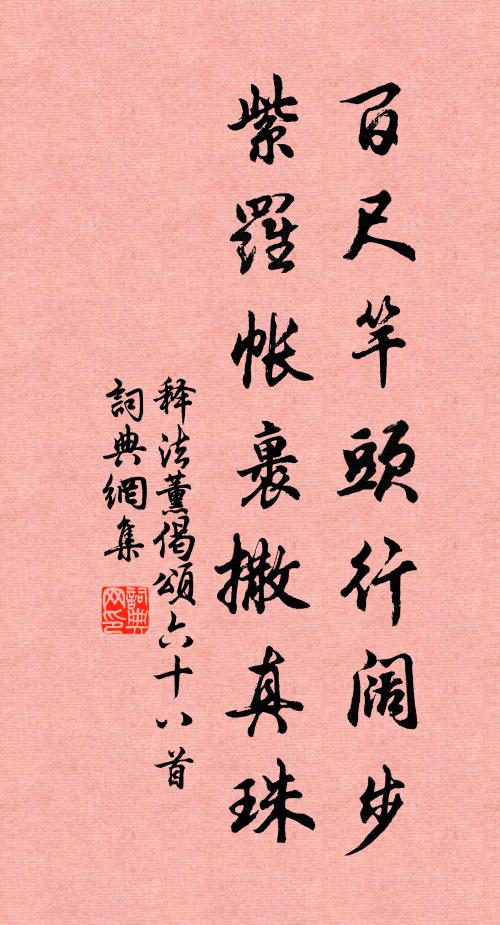 百尺竿頭行闊步
紫羅帳裹撒真珠
释法薰偈頌六十八首
詞典網集
詞典網印